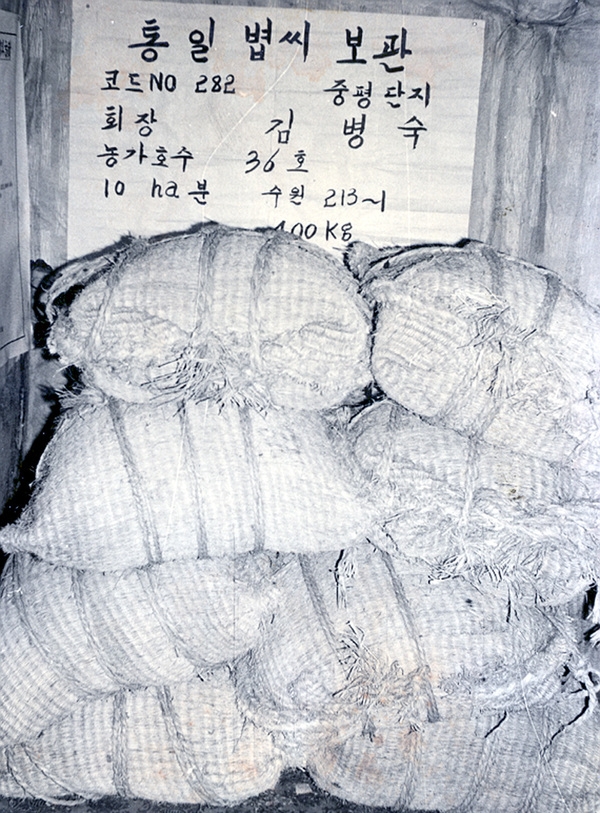 통일 볍씨 보관
코드NO 282 중평단지
회장 김병숙
농가호수 36호
10 ha분 수원 213~1
400Kg